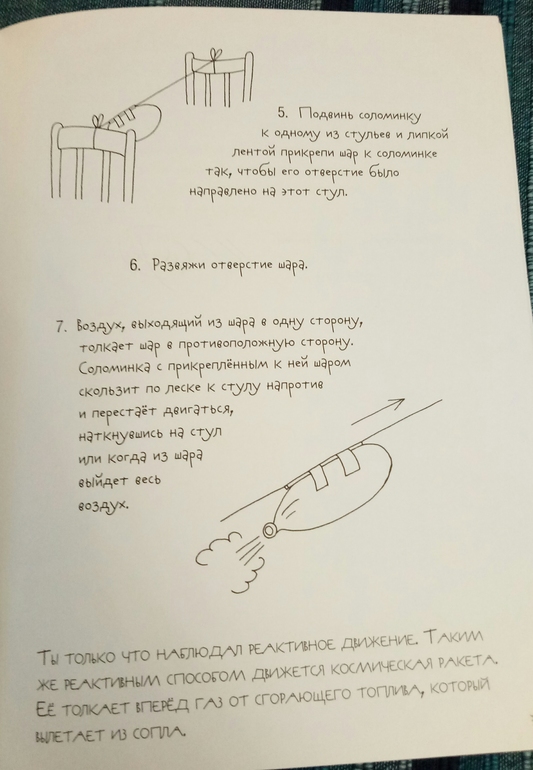 5. Подвинь соломинку
к одному из стульев и липкой
лентой прикрепи шар к соломинке
так, чтобы его отверстие было
направлено на этот стул.
6. Развяжи отверстие шара.
7. Воздух, выходящий из шара в одну сторону,
толкает шар в противоположную сторону.
Соломинка с прикреплённым к ней шаром
скользит по леске к стулу напротив
и перестаёт двигаться,
наткнувшись на стул
или когда из шара
выйдет весь
воздух.
Ты только что наблюдал реактивное движение. Таким
же реактивным способом движется космическая ракета.
Её толкает вперёд газ от сгорающего топлива, который
вылетает из сопла.